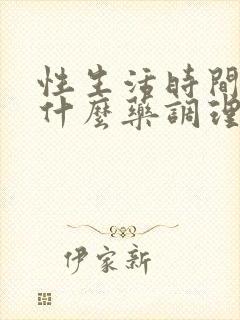 性生活時間
什麼藥調理
伊家新